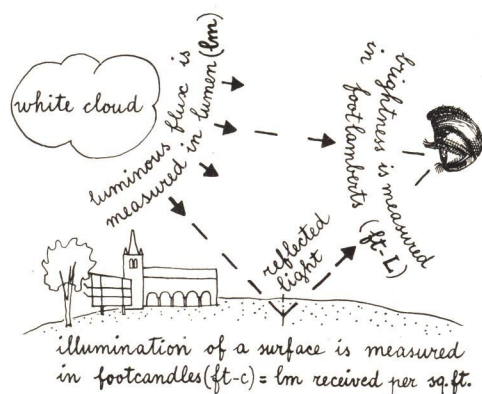 white cloud
luminous flux is
measured in lumen (lm)
brightness is measured
in footlamberts (ft-L)
reflected
light
illumination of a surface is measured
in footcandles (ft-c) = lm received per sq.ft.